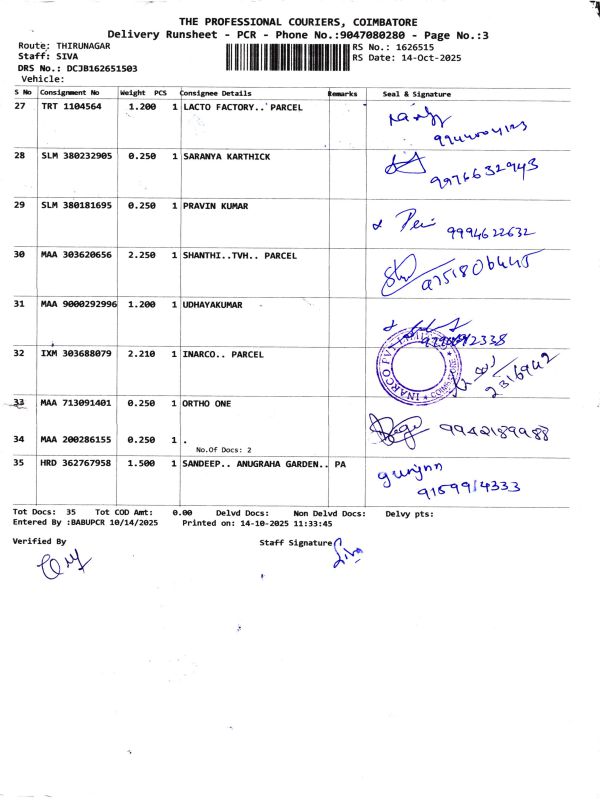 THE PROFESSIONAL COURIERS, COIMBATORE
Delivery Runsheet - PCR - Phone No.:9047080280 - Page No.:3
Route: THIRUNAGAR
RS No.: 1626515
Staff: SIVA
RS Date: 14-Oct-2025
DRS No.: DCJB162651503
Vehicle:
S No Consignment No Weight PCS Consignee Details Remarks Seal & Signature
27 TRT 1104564 1.200 1 LACTO FACTORY.. PARCEL
28 SLM 380232905 0.250 1 SARANYA KARTHICK
9976632943
29 SLM 380181695 0.250 1 PRAVIN KUMAR
9994622632
30 MAA 303620656 2.250 1 SHANTHI..TVH.. PARCEL
9751806445
31 MAA 9000292996 1.200 1 UDHAYAKUMAR
32 IXM 303688079 2.210 1 INARCO.. PARCEL
INARCO PVT
2316942
33 MAA 713091401 0.250 1 ORTHO ONE
9942189988
34 MAA 200286155 0.250 1 .
No.Of Docs: 2
35 HRD 362767958 1.500 1 SANDEEP.. ANUGRAHA GARDEN.. PA
9159914333
Tot Docs: 35 Tot COD Amt: 0.00 Delvd Docs: Non Delvd Docs: Delvy pts:
Entered By :BABUPCR 10/14/2025 Printed on: 14-10-2025 11:33:45
Verified By Staff Signature
Siva